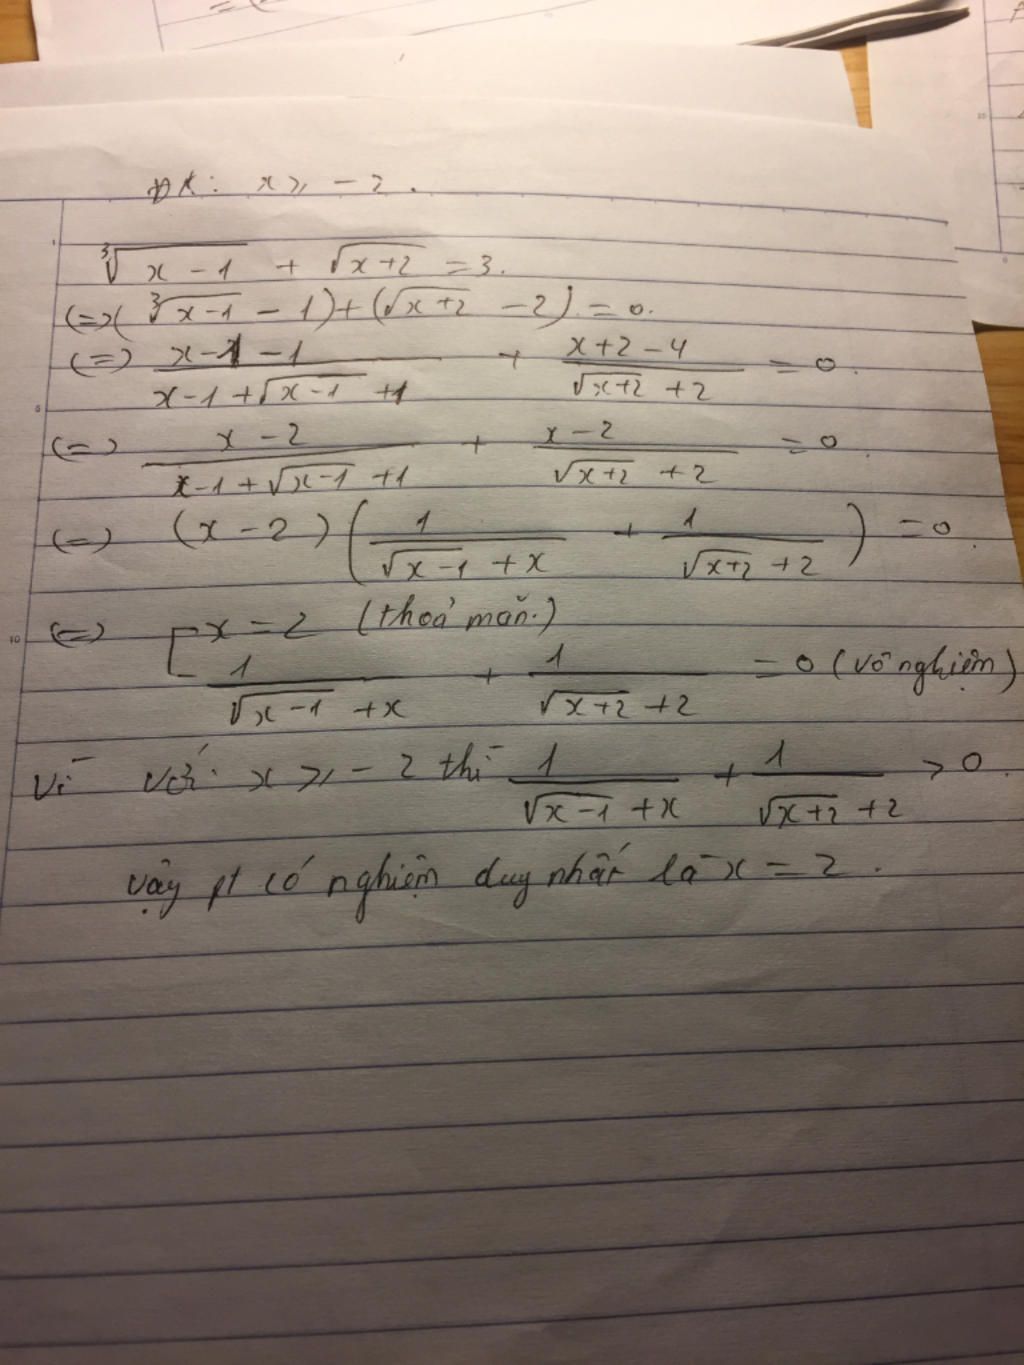 ĐK: x ⩾ -2.
∛(x-1) + √(x+2) = 3.
(=>( ∛(x-1) - 1) + (√(x+2) - 2) = 0.
(=) (x-1-1)/(x-1+√(x-1)+1) + (x+2-4)/(√(x+2)+2) = 0.
(=) (x-2)/(x-1+√(x-1)+1) + (x-2)/(√(x+2)+2) = 0
(=) (x-2)(1/(√(x-1)+x) + 1/(√(x+2)+2)) = 0.
(=) [ x = 2 (thoả mãn.)
1/(√(x-1)+x) + 1/(√(x+2)+2) = 0 (vô nghiệm)
Vì với x ⩾ -2 thì 1/(√(x-1)+x) + 1/(√(x+2)+2) > 0.
Vậy pt có nghiệm duy nhất là x = 2.